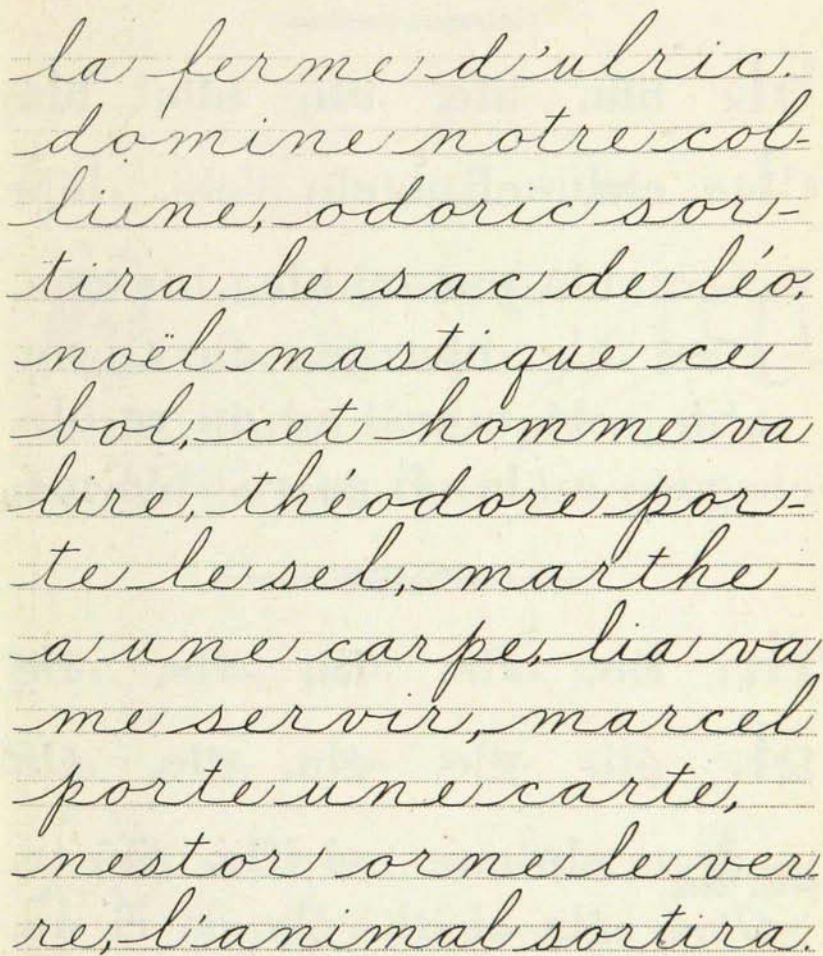 la ferme d'ulric.
domine notre col-
line, odoric sor-
tira le sac de léo,
noël mastique ce
bol, cet homme va
lire, théodore por-
te le sel, marthe
a une carpe, lia va
me servir, marcel
porte une carte,
nestor orne le ver
re, l'animal sortira.